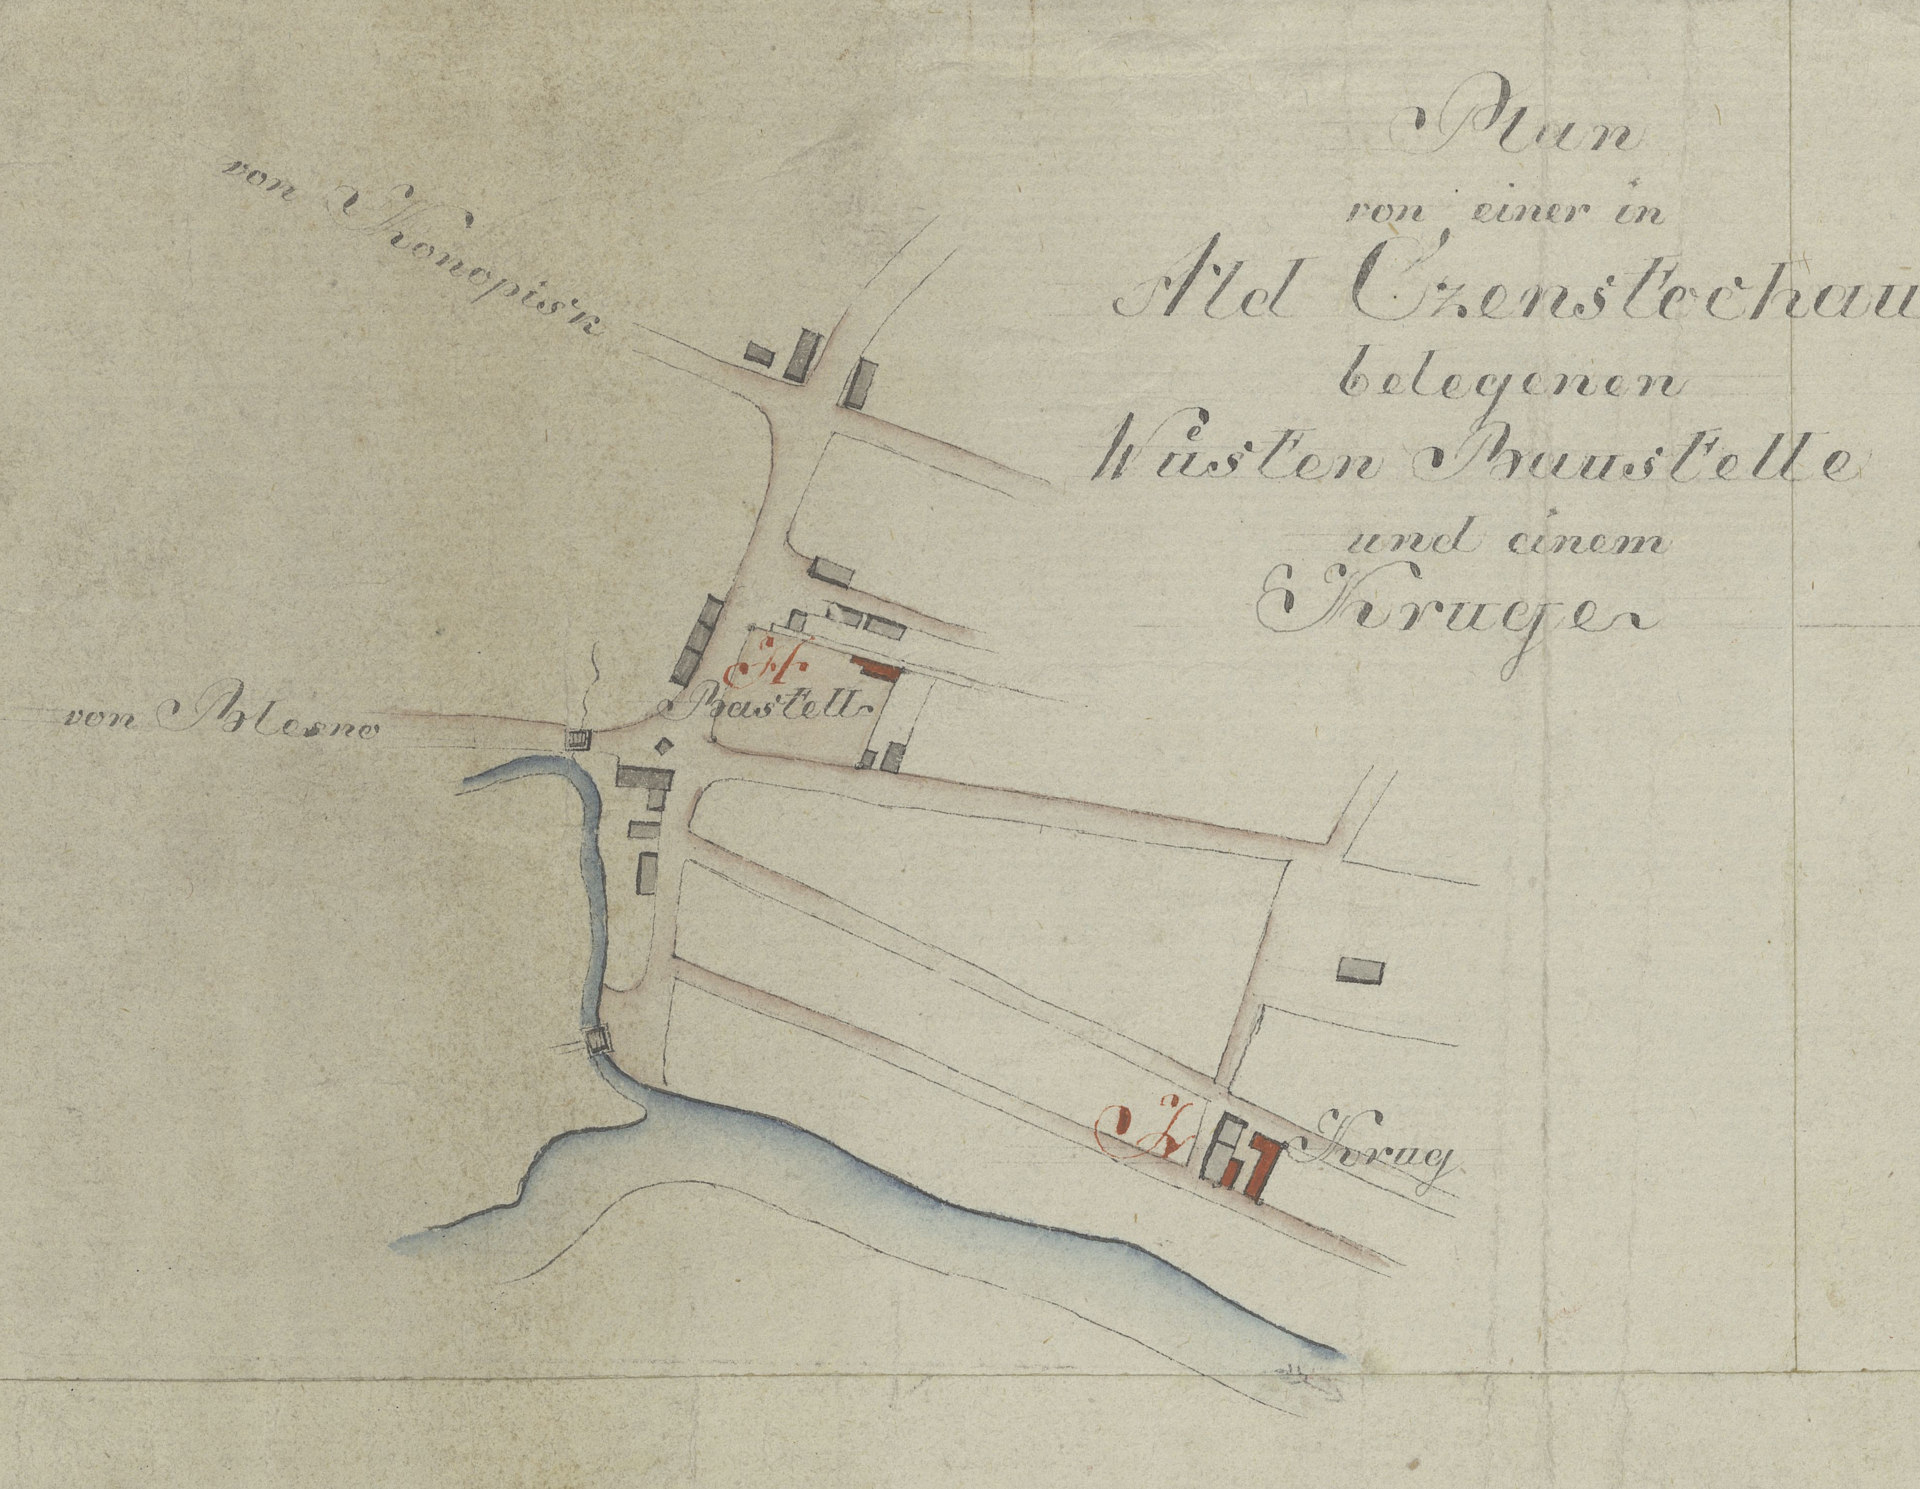 Plan
von einer in
Ald Czenstochau
belegenen
Wüsten Baustelle
und einem
Kruge
von Konopisk
von Blesno
H
Bastell
K
Krug